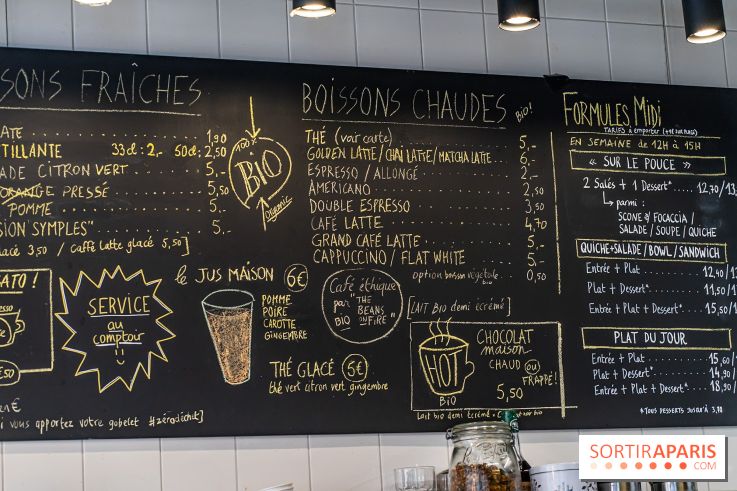 SONS FRAÎCHES
ATE 1,90
TILLANTE 33cl: 2,- 50cl: 2,50
ADE CITRON VERT 5,-
ORANGE PRESSÉ 5,-
POMME 5,-
SION SYMPLES" 5,-
lacé 3,50 / caffè latte glacé 5,50]
100% BIO
Organic
SERVICE
au
comptoir
le JUS MAISON 6€
POMME
POIRE
CAROTTE
GINGEMBRE
THÉ GLACÉ 5€
thé vert citron vert gingembre
si vous apportez votre gobelet #zérodéchet]
BOISSONS CHAUDES BIO!
THÉ (voir carte) 5,-
GOLDEN LATTE / CHAÏ LATTE / MATCHA LATTE 6,-
ESPRESSO / ALLONGÉ 2,-
AMERICANO 2,50
DOUBLE ESPRESSO 3,50
CAFÉ LATTE 4,70
GRAND CAFÉ LATTE 5,-
CAPPUCCINO / FLAT WHITE 5,-
option boisson végétale bio 0,50
Café éthique
par "THE
BEANS
ON
FIRE"
BIO
[LAIT BIO demi écrémé]
HOT
BIO
CHOCOLAT
maison
CHAUD ou
FRAPPÉ!
5,50
Lait bio demi écrémé
FORMULES MIDI
TARIFS à emporter
EN SEMAINE de 12H à 15H
« SUR LE POUCE »
2 Salés + 1 Dessert* 12,70/13
parmi :
SCONE / FOCACCIA /
SALADE / SOUPE / QUICHE
QUICHE+SALADE/BOWL/SANDWICH
Entrée + Plat 12,40/1
Plat + Dessert* 11,50/1
Entrée + Plat + Dessert* 15,50/1
PLAT DU JOUR
Entrée + Plat 15,60/1
Plat + Dessert* 14,90/1
Entrée + Plat + Dessert* 18,90/
*TOUS DESSERTS JUSQU'À 3,90
SORTIRAPARIS
.COM